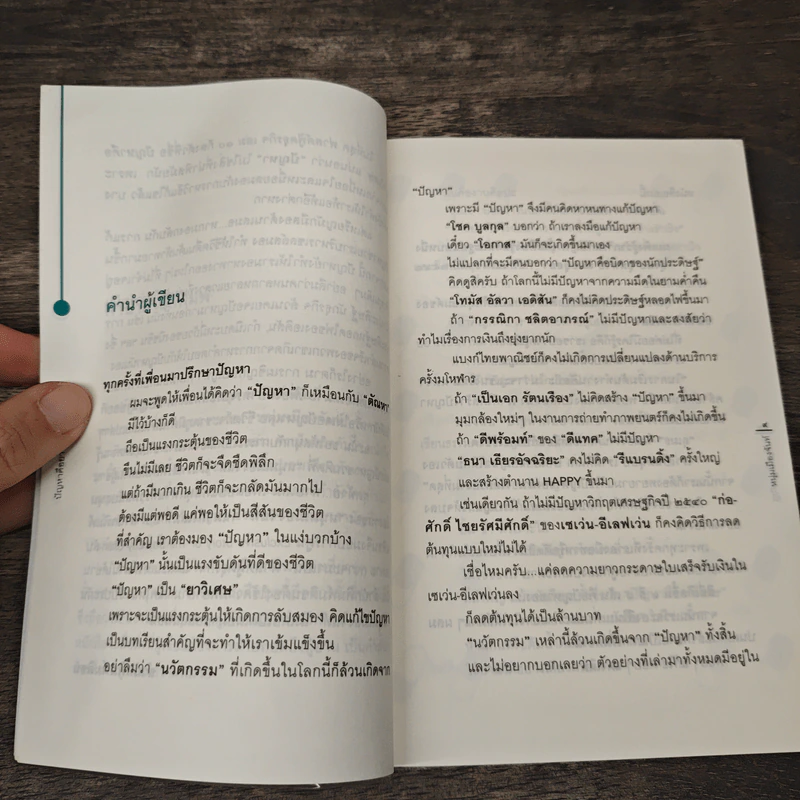 คำนำผู้เขียน
ทุกครั้งที่เพื่อนมาปรึกษาปัญหา
ผมจะพูดให้เพื่อนได้คิดว่า "ปัญหา" ก็เหมือนกับ "ตัณหา"
มีไว้บ้างก็ดี
ถือเป็นแรงกระตุ้นของชีวิต
ขืนไม่มีเลย ชีวิตก็จะจืดชืดพิลึก
แต่ถ้ามีมากเกิน ชีวิตก็จะกลัดมันมากไป
ต้องมีแต่พอดี แค่พอให้เป็นสีสันของชีวิต
ที่สำคัญ เราต้องมอง "ปัญหา" ในแง่บวกบ้าง
"ปัญหา" นั้นเป็นแรงขับดันที่ดีของชีวิต
"ปัญหา" เป็น "ยาวิเศษ"
เพราะจะเป็นแรงกระตุ้นให้เกิดการลับสมอง คิดแก้ไขปัญหา
เป็นบทเรียนสำคัญที่จะทำให้เราเข้มแข็งขึ้น
อย่าลืมว่า "นวัตกรรม" ที่เกิดขึ้นในโลกนี้ก็ล้วนเกิดจาก
"ปัญหา"
เพราะมี "ปัญหา" จึงมีคนคิดหาหนทางแก้ปัญหา
"โชค บูลกุล" บอกว่า ถ้าเราลงมือแก้ปัญหา
เดี๋ยว "โอกาส" มันก็จะเกิดขึ้นมาเอง
ไม่แปลกที่จะมีคนบอกว่า "ปัญหาคือบิดาของนักประดิษฐ์"
คิดดูสิครับ ถ้าโลกนี้ไม่มีปัญหาจากความมืดในยามค่ำคืน
"โทมัส อัลวา เอดิสัน" ก็คงไม่คิดประดิษฐ์หลอดไฟขึ้นมา
ถ้า "กรรณิกา ชลิตอาภรณ์" ไม่มีปัญหาและสงสัยว่า
ทำไมเรื่องการเงินถึงยุ่งยากนัก
แบงก์ไทยพาณิชย์ก็คงไม่เกิดการเปลี่ยนแปลงด้านบริการ
ครั้งมโหฬาร
ถ้า "เป็นเอก รัตนเรือง" ไม่คิดสร้าง "ปัญหา" ขึ้นมา
มุมกล้องใหม่ๆ ในงานการถ่ายทำภาพยนตร์ก็คงไม่เกิดขึ้น
ถ้า "ดีพร้อมท์" ของ "ดีแทค" ไม่มีปัญหา
"ธนา เธียรอัจฉริยะ" คงไม่คิด "รีแบรนดิ้ง" ครั้งใหญ่
และสร้างตำนาน HAPPY ขึ้นมา
เช่นเดียวกัน ถ้าไม่มีปัญหาวิกฤตเศรษฐกิจปี ๒๕๔๐ "ก่อ-
ศักดิ์ ไชยรัศมีศักดิ์" ของเซเว่น-อีเลฟเว่น ก็คงคิดวิธีการลด
ต้นทุนแบบใหม่ไม่ได้
เชื่อไหมครับ...แค่ลดความยาวกระดาษใบเสร็จรับเงินใน
เซเว่น-อีเลฟเว่นลง
ก็ลดต้นทุนได้เป็นล้านบาท
"นวัตกรรม" เหล่านี้ล้วนเกิดขึ้นจาก "ปัญหา" ทั้งสิ้น
และไม่อยากบอกเลยว่า ตัวอย่างที่เล่ามาทั้งหมดมีอยู่ใน
หนุ่มเมืองจันท์